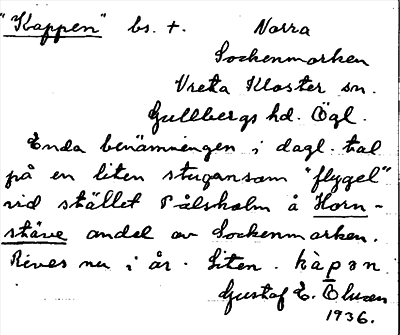 "Kappen" bs. +. Norra
Sockenmarken
Vreta Kloster sn.
Gullbergs hd. Ögl.
Enda benämningen i dagl. tal
på en liten stugansam "flygel"
vid stället Pålsholm å Horn-
stäve andel av Sockenmarken.
Rives nu i år. Liten. kàpən
Gustaf E. Olsson
1936.